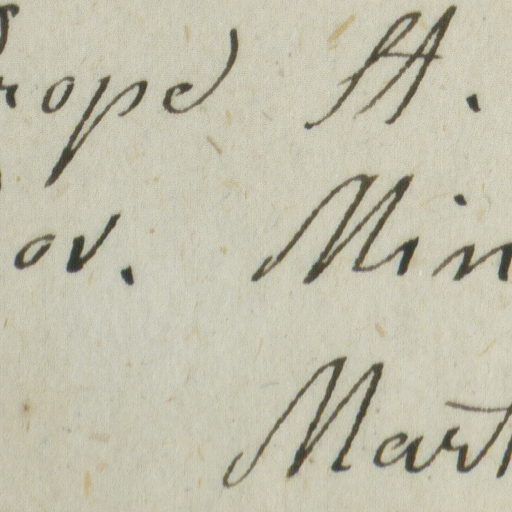 rope A.
ov. Min
Mart